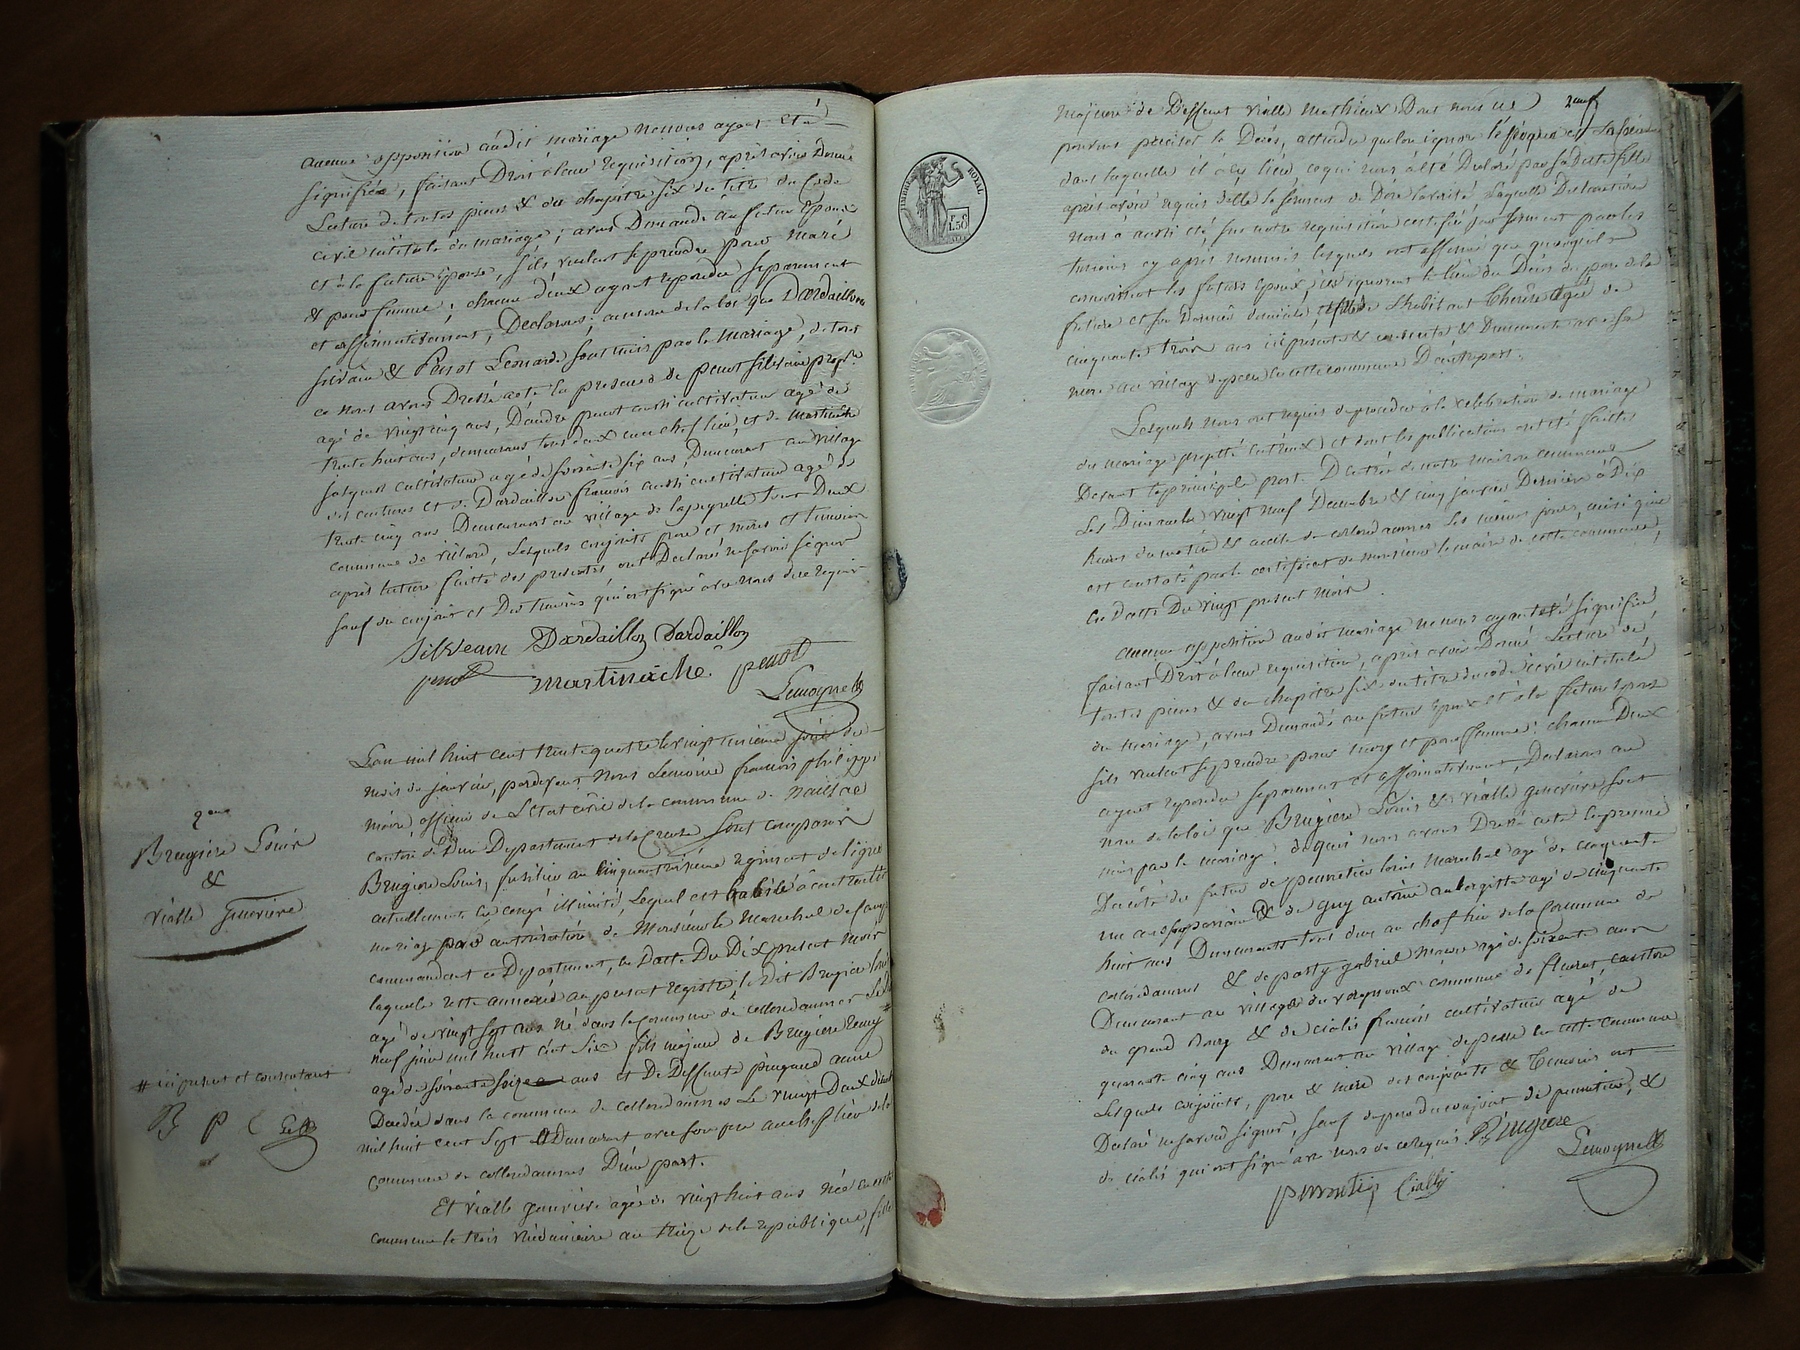 aucune opposition audit mariage ne nous ayant été
signifiée, faisant Droit à leur requisition, après avoir Donné
Lecture de toutes pieces & du chapitre six du titre du Code
civil intitulé du mariage; avons Demandé au futur Epoux
et à la future Epouse, s'ils veulent se prendre pour mari
& pour femme; chacun d'eux ayant repondu separement
et affirmativement, Declarons, au nom de la loi que Dardaillon
silvain & Penot Leonarde sont unis par le mariage, de tout
ce nous avons Dressé acte en presence de penot silvain
agé de vingt cinq ans, D'andre penot aussi cultivateur agé de
trente huit ans, demeurans tous deux au chef lieu, et de Martinache
jacques cultivateur agé de soixante six ans, Demeurant au village
des coutures et de Dardaillon francois aussi cultivateur agé de
trente cinq ans Demeurant au village de tous Deux
commune de villard, Lesquels conjoints pere et mères et temoins
après lecture faitte des presentes ont Declaré ne savoir signer
sauf du conjoint et Des temoins qui ont signé avec nous de ce requis
Silveain Dardaillon Dardaillon
penot Martinache penot
Lemoyne
L'an mil huit cent trente quatre le vingt unieme jour du
mois de janvier, pardevant Nous Lemoine francois philippe
maire officier de L'Etat civil de la commune de Naillac
canton de Dun Departement de la Creuse Sont comparus
2eme
Brugiere Louis
&
vialle genevieve
Brugiere Louis, fusilier au Cinquante troisième regiment de ligne
actuellement en congé illimité, Lequel est habilé à contracter
mariage par autorisation de Monsieur le Marechal de camp
commandant ce Departement, en Datte Du Dix present mois
laquelle rette annexée au present registre, le dit Brugiere Louis
agé de vingt sept ans Né dans la Commune de collondannes le
neuf juin mil huit cent six fils majeur de Brugiere remy #
# ici present et consentant
B P C
agé de soixante seize ans et De Deffunte pingaud anne
Decedée dans la commune de collondannes Le vingt Deux
mil huit cent sept & Demeurant avec son pere au chef lieu de la
commune de collondannes D'une part.
Et vialle genevieve agée de vingt huit ans née en cette
commune le trois vendemiaire an treize de la république, fille
2eme f
majeure de Deffunt vialle Mathieux Dont nous ne
pouvons preciser le Deces, attendu que l'on ignore l'epoque et
dans laquelle il a eu lieu, ce qui nous a été Declaré par sadite fille
après avoir requis d'elle le serment de Dire la verité, laquelle Declaration
nous a aussi été, sur notre requisition certifiée par serment par les
temoins cy après nommés lesquels ont affirmé que quoiqu'ils
connoissent les futurs epoux, ils ignorent le lieu du Deces du pere de la
future et son Dernier domicile, et de Chérèse agée de
cinquante trois ans ici presente & consente & Demeurante avec sa
mere au village de en cette commune D'autre part.
Lesquels nous ont requis de proceder à la celebration de mariage
du mariage projetté entr'eux) et dont les publications ont été faittes
Devant la principale porte D'entrée de notre maison commune
Les Dimanches vingt neuf Decembre & cinq janvier Derniers à Dix
heures du matin & a celle de collondannes les memes jours, ainsi qu'il
est constaté par le certificat de monsieur le maire de cette commune,
en Datte Du vingt present mois.
Aucune opposition audit mariage ne nous ayant été signifiée,
faisant Droit à leur requisition, apres avoir Donné Lecture de
toutes pieces & du chapitre six du titre du code civil intitulé
du mariage, avons Demandé au futur Epoux et à la future Epouse
s'ils veulent se prendre pour mary et pour femme: chacun D'eux
ayant repondu separement et affirmativement, Declarons au
nom de la loi que Brugiere Louis & vialle genevieve sont
unis par le mariage. de quoi nous avons Dressé acte en presence
Du coté du futur de louis marechal agé de cinquante
un ans & de guy antoine aubergiste agé de cinquante
huit ans Demeurants tous deux au chef lieu de la Commune de
collondannes & de party gabriel agé de soixante ans
Demeurant au village du commune de fleurat, canton
du grand Bourg & de cialis francois cultivateur agé de
quarante cinq ans Demeurant au village de en cette commune
Lesquels conjoints, pere & mere des conjoints & Temoins ont
Declaré ne savoir signer, sauf le pere du conjoint de &
de cialis qui ont signé avec nous de ce requis. Brugiere
Lemoyne
Cially